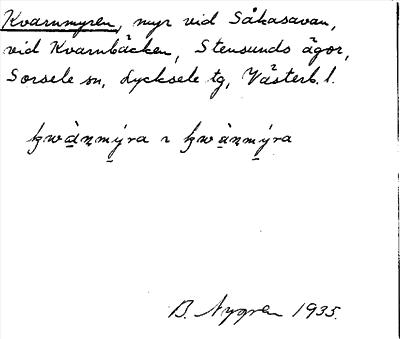 Kvarnmyren, myr vid Såkasavan,
vid Kvarnbäcken, Stensunds ägor,
Sorsele sn, Lycksele tg, Västerb. l.
B. Nygren 1935.